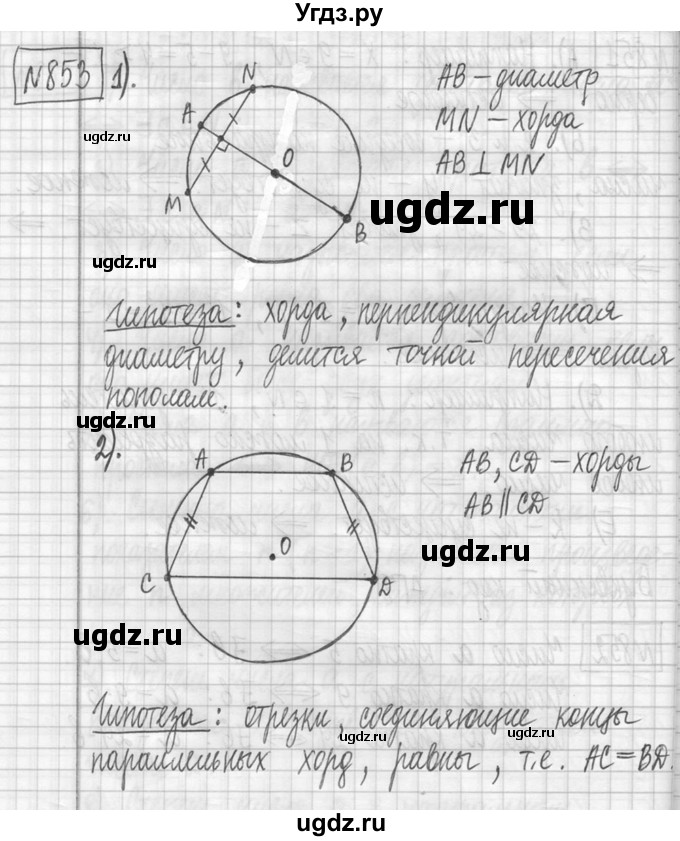 Угдз.ру
№853 1).
N
A
O
M
B
AB – диаметр
MN – хорда
AB ⊥ MN
ugdz.ru
ugdz.ru
ugdz.ru
Гипотеза: хорда, перпендикулярная
диаметру, делится точкой пересечения
пополам.
ugdz.ru
2).
A
B
O
C
D
AB, CD – хорды
AB || CD
ugdz.ru
ugdz.ru
ugdz.ru
ugdz.ru
Гипотеза: отрезки, соединяющие концы
параллельных хорд, равны, т.е. AC = BD.
ugdz.ru